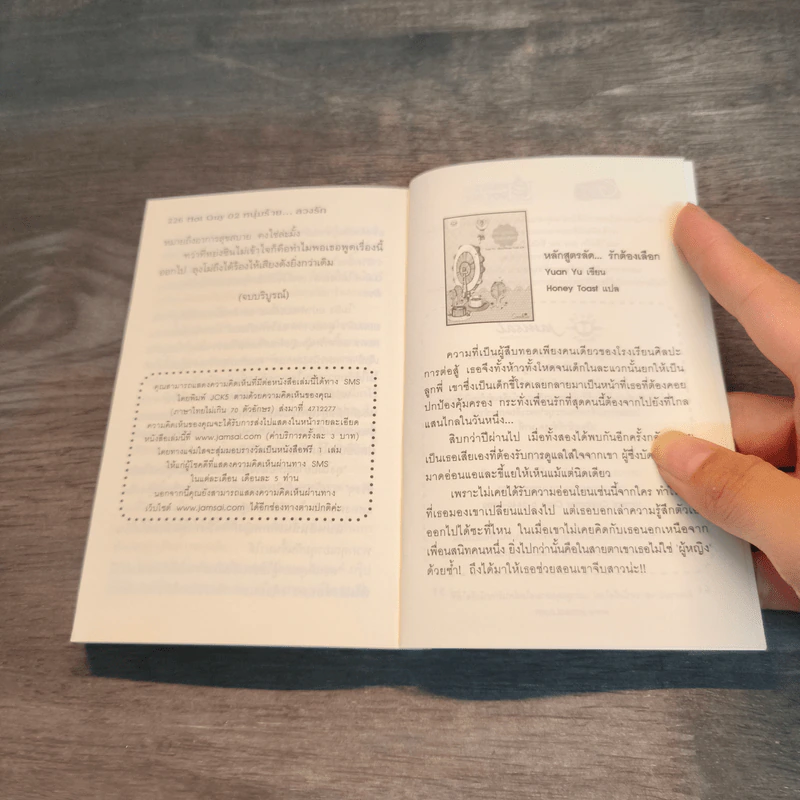 หมายถึงอาการสุขสบาย คงใช่ละมั้ง
กว่าตี๋หยงชินไม่เข้าใจก็คือทำไมพอเธอพูดเรื่องนี้
ออกไป ลุงไม่ถึงได้ร้องไห้เสียงดังยิ่งกว่าเดิม
(จบบริบูรณ์)
คุณสามารถแสดงความคิดเห็นที่มีต่อหนังสือเล่มนี้ได้ทาง SMS
โดยพิมพ์ JCKS ตามด้วยความคิดเห็นของคุณ
(ภาษาไทยไม่เกิน 70 ตัวอักษร) ส่งมาที่ 4712277
ความคิดเห็นของคุณจะได้รับการส่งไปแสดงในหน้ารายละเอียด
หนังสือเล่มนี้ที่ www.jamsai.com (ค่าบริการครั้งละ 3 บาท)
โดยทางแจ่มใสจะสุ่มมอบรางวัลเป็นหนังสือฟรี 1 เล่ม
ให้แก่ผู้โชคดีที่แสดงความคิดเห็นผ่านทาง SMS
ในแต่ละเดือน เดือนละ 5 ท่าน
นอกจากนี้คุณยังสามารถแสดงความคิดเห็นผ่านทาง
เว็บไซต์ www.jamsai.com ได้อีกช่องทางตามปกติค่ะ
หลักสูตรลัด... รักต้องเลือก
Yuan Yu เขียน
Honey Toast แปล
ความที่เป็นผู้สืบทอดเพียงคนเดียวของโรงเรียนศิลปะ
การต่อสู้ เธอจึงทั้งห้าวทั้งโหดจนเด็กในละแวกนั้นยกให้เป็น
ลูกพี่ เขาซึ่งเป็นเด็กขี้โรคเลยกลายมาเป็นหน้าที่เธอที่ต้องคอย
ปกป้องคุ้มครอง กระทั่งเพื่อนรักที่สุดคนนี้ต้องจากไปยังที่ไกล
แสนไกลในวันหนึ่ง...
สิบกว่าปีผ่านไป เมื่อทั้งสองได้พบกันอีกครั้ง
เป็นเธอเสียเองที่ต้องรับการดูแลใส่ใจจากเขา ผู้ซึ่ง
มาดอ่อนแอและขี้แยให้เห็นแม้แต่นิดเดียว
เพราะไม่เคยได้รับความอ่อนโยนเช่นนี้จากใคร
ที่เธอมองเขาเปลี่ยนแปลงไป แต่เธอบอกเล่าความรู้สึก
ออกไปได้ซะที่ไหน ในเมื่อเขาไม่เคยคิดกับเธอนอกเหนือจาก
เพื่อนสนิทคนหนึ่ง ยิ่งไปกว่านั้นคือในสายตาเขาเธอไม่ใช่ 'ผู้หญิง'
ด้วยซ้ำ! ถึงได้มาให้เธอช่วยสอนเขาจีบสาวน่ะ!!